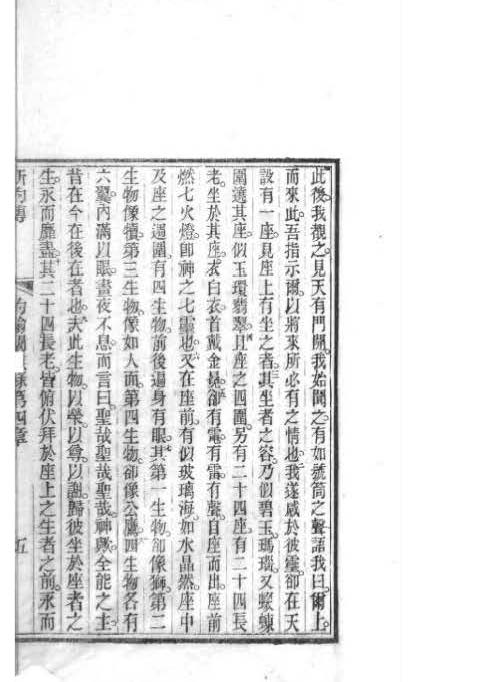 此後。我觀之。見天有門開。我始聞之。有如號筒之聲。語我曰。爾上
而來此。吾指示爾。以將來所必有之情也。我遂感於彼靈。卻在天
設有一座。見座上有坐之者。其坐者之容。乃似碧玉。瑪瑙。又螮蝀
圍遶其座。似玉環翡翠。且座之四圍。另有二十四座。有二十四長
老。坐於其座。衣白衣。首戴金冕。卻有電。有雷。有聲。自座而出。座前
燃七火燈。卽神之七靈也。又在座前。有似玻璃海。如水晶然。座中
及座之週圍。有四生物。前後遍身有眼。其第一生物。卻像獅。第二
生物像犢。第三生物。像如人面。第四生物。卻像飛鷹。四生物各有
六翼。內滿以眼。晝夜不息。而言曰。聖哉。聖哉。聖哉。神歟。全能之主。
昔在今在後在者也。夫此生物。以榮。以尊。以謝。歸彼坐於座者之
生。永而靡盡。其二十四長老。皆俯伏拜於座上之生者之前。永而
新約傳 第四章 五